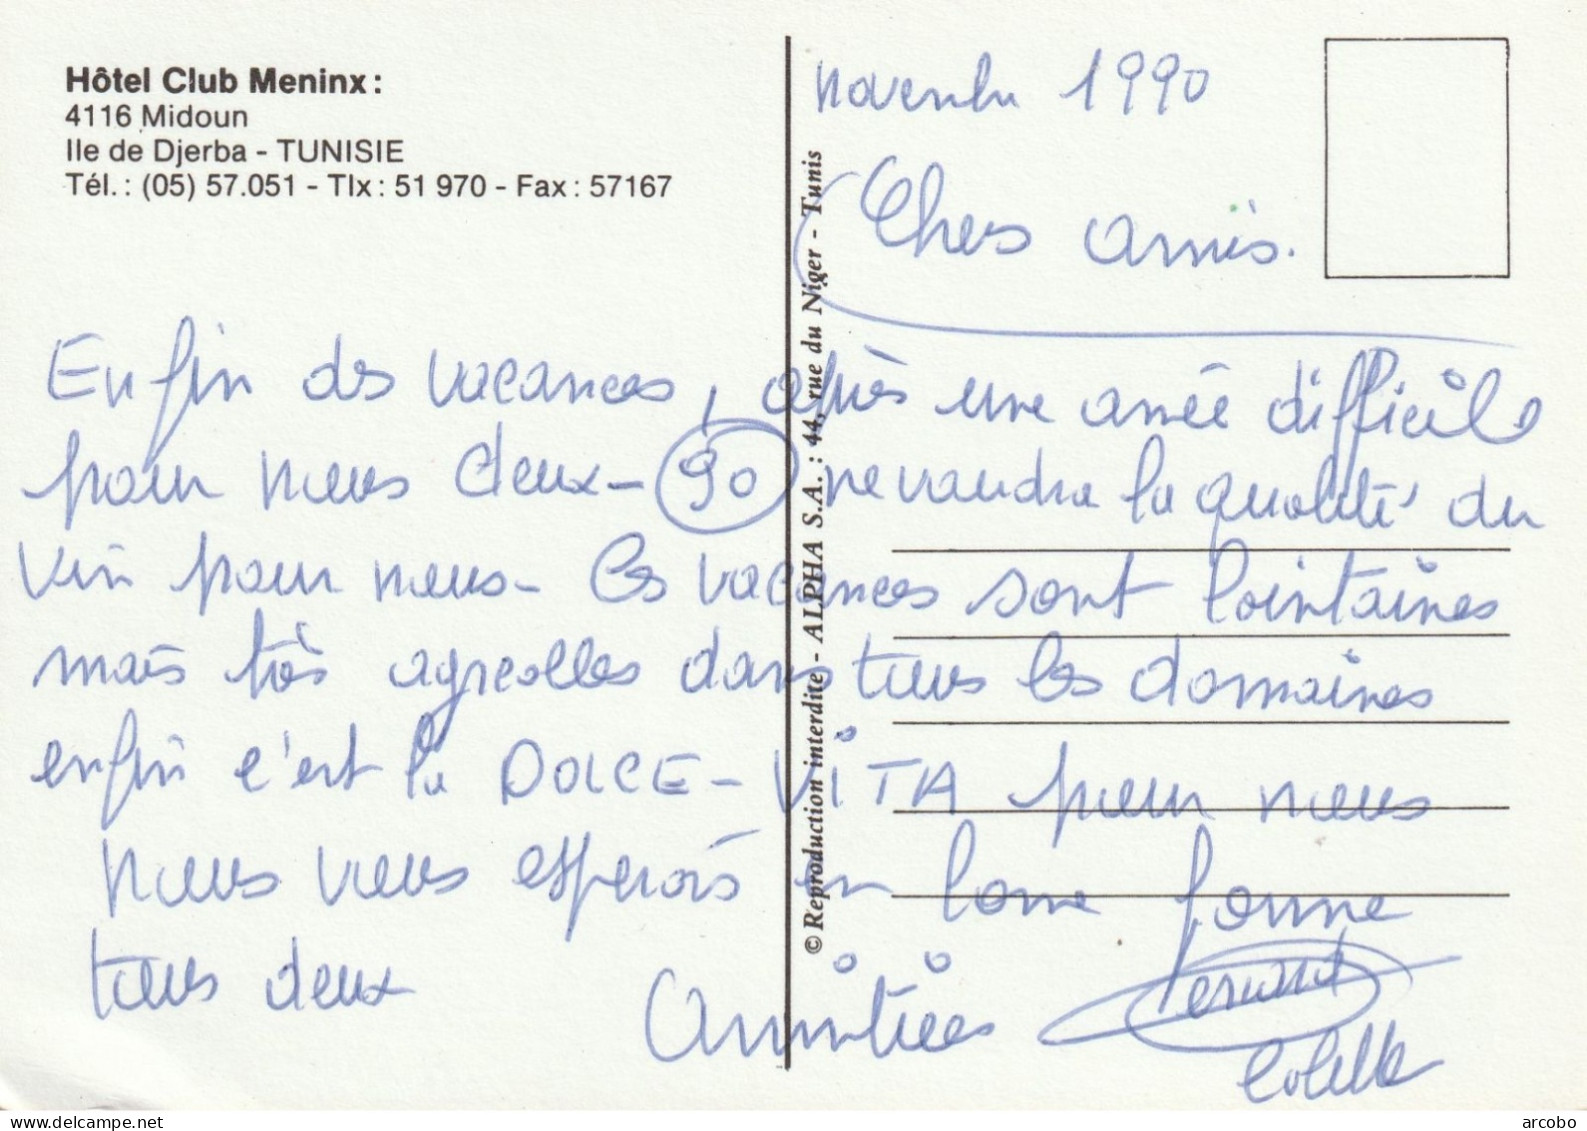 Hôtel Club Meninx :
4116 Midoun
Ile de Djerba - TUNISIE
Tél. : (05) 57.051 - Tlx : 51 970 - Fax : 57167
novembre 1990
Chers amis.
Enfin des vacances, après une année difficile
pour nous deux - 90 ne vaudra la qualité du
vin pour nous - les vacances sont lointaines
mais très agreables dans tous les domaines
enfin c'est la DOLCE - ViTA pour nous
nous vous esperons en bonne forme
tous deux
Amitiées
Fernand
Colette
© Reproduction interdite - ALPHA S.A. : 44, rue du Niger - Tunis
Delcampe.net
arcobo